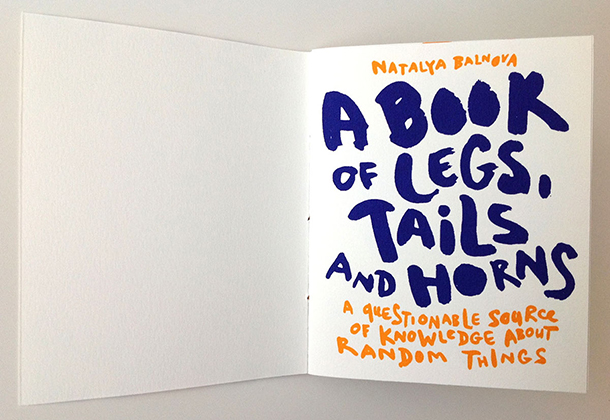 NATALYA BALNOVA
A BOOK
OF LEGS,
TAiLS
AND HORNS
A QUESTIONABLE SOURCE
OF KNOWLEDGE ABOUT
RANDOM THINGS